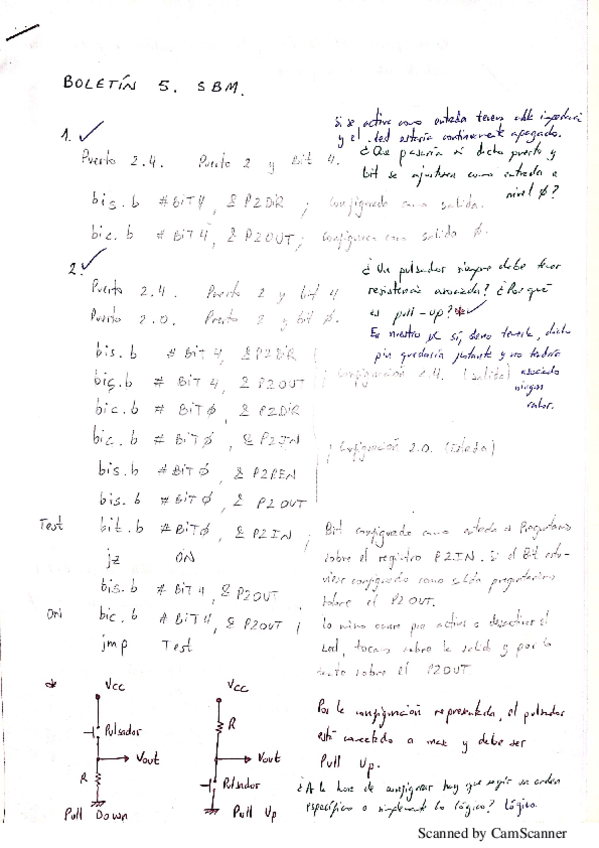 BOLETÍN 5. SBM.
Si se activa como entrada tenemos alta impedancia
y el led estaría continuamente apagado.
1.
Puerto 2.4. Puerto 2 y Bit 4.
¿Que pasaría si dicho puerto y
bit se ajustasen como entrada a
nivel Ø?
bis.b #BIT4, &P2DIR ; Configurado como salida.
bic.b #BIT4, &P2OUT ; Configuramos como salida Ø.
2.
¿Un pulsador siempre debe tener
resistencia asociada? ¿Por qué
es pull-up?*
Puerto 2.4. Puerto 2 y bit 4
Puerto 2.0. Puerto 2 y bit Ø.
En nuestro sí, debe tenerla, dicho
pin quedaría flotante y no tendría
asociado
ningún
valor.
bis.b #BIT4, &P2DIR
bic.b #BIT4, &P2OUT ; Configuración 2.4. (salida)
bic.b #BITØ, &P2DIR
bic.b #BITØ, &P2IN ; Configuración 2.0. (entrada)
bis.b #BITØ, &P2REN
bis.b #BITØ, &P2OUT
Test bit.b #BITØ, &P2IN ; Bit configurado como entrada → Preguntamos
jz ON sobre el registro P2IN. Si el Bit estu-
viese configurado como salida preguntaríamos
bis.b #BIT4, &P2OUT sobre el P2OUT.
bic.b #BIT4, &P2OUT ; Lo mismo ocurre para activar o desactivar el
jmp Test Led, tocamos sobre la salida y por lo
tanto sobre el P2OUT
*
Vcc
Pulsador
Vout
R
Pull Down
Vcc
R
Vout
Pulsador
Pull Up
Por la configuración representada, el pulsador
está conectado a masa y debe ser
Pull Up.
¿A la hora de configurar hay que seguir un orden
específico o simplemente lo lógico? Lógico.
Scanned by CamScanner